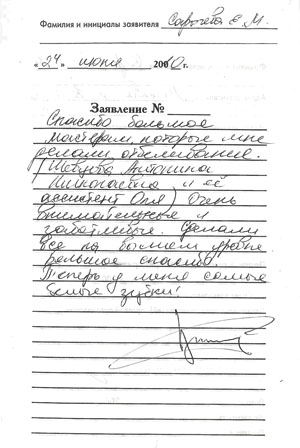 Фамилия и инициалы заявителя Сафычева Е.М.
«24» июня 2010г.
Заявление №
Спасибо большое
мастерам, которые мне
делали отбеливание.
(Шевчук Антонина
Николаевна и её
ассистент Оля) Очень
внимательные и
заботливые. Сделали
все на высшем уровне
Большое спасибо.
Теперь у меня самые
белые зубки!